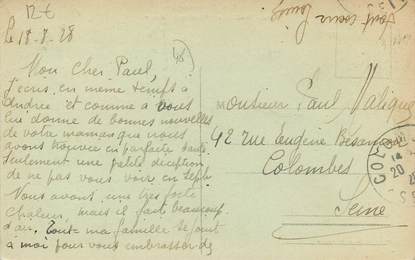 12 €
le 18-8-28
Mon cher Paul,
J'écris en même temps à
Andrée et comme à vous
lui donne de bonnes nouvelles
de votre maman que nous
avons trouvée en parfaite santé
seulement une petite déception
de ne pas vous voir en Sept.
Nous avons une très forte
chaleur, mais il fait beaucoup
d'air. Toute ma famille se joint
à moi pour vous embrasser de
tout cœur
Monsieur Paul
42 rue Eugène
Colombes
Seine